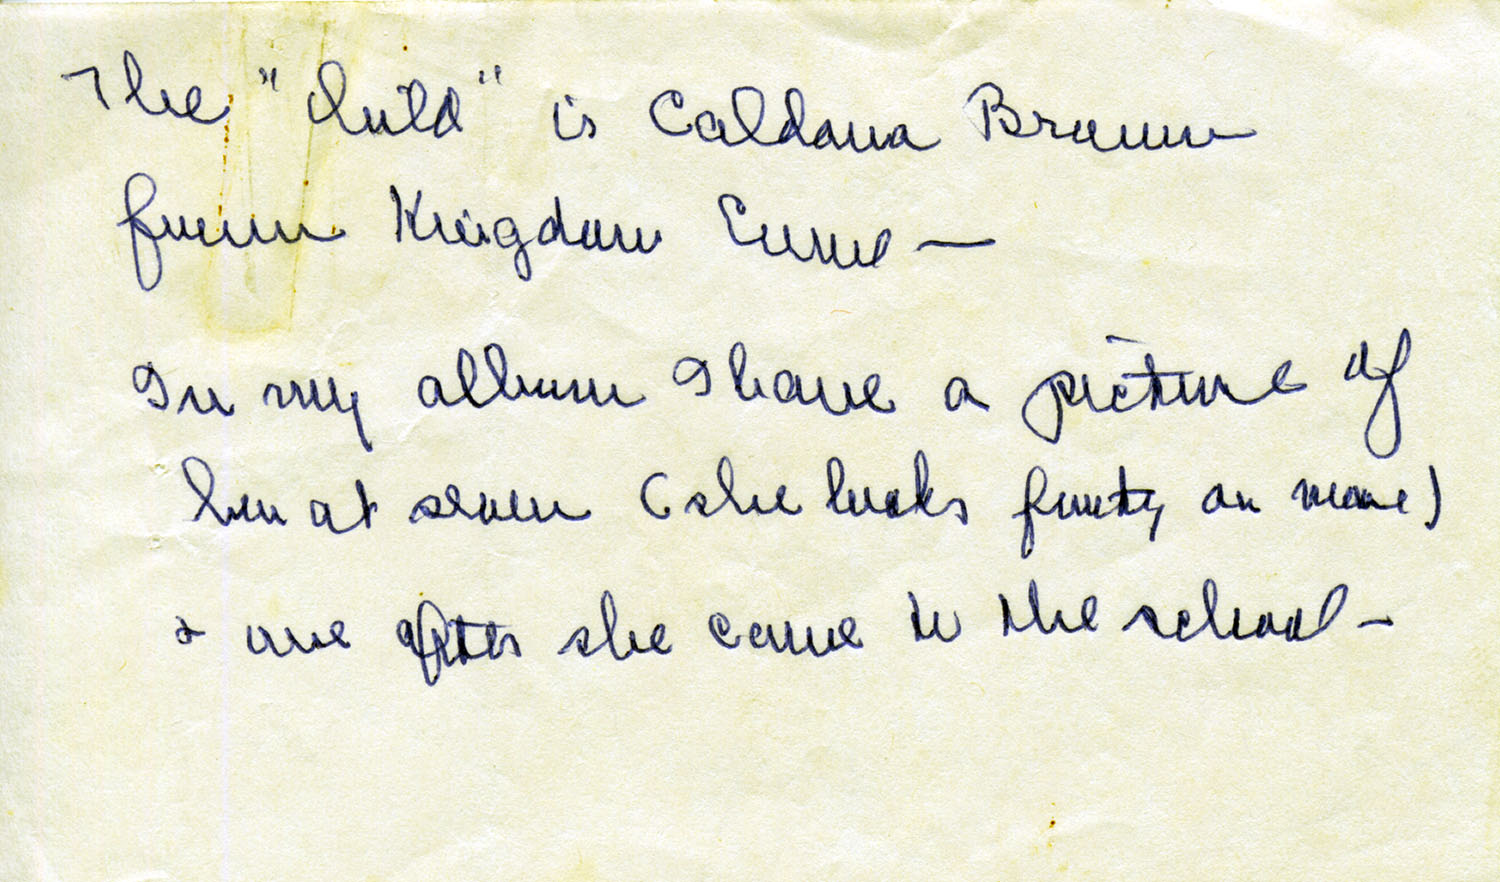 The "child" is Caldona Brown
from Kingdom Come —
In my album I have a picture of
her at seven (she looks forty or more)
& one after she came to the school —